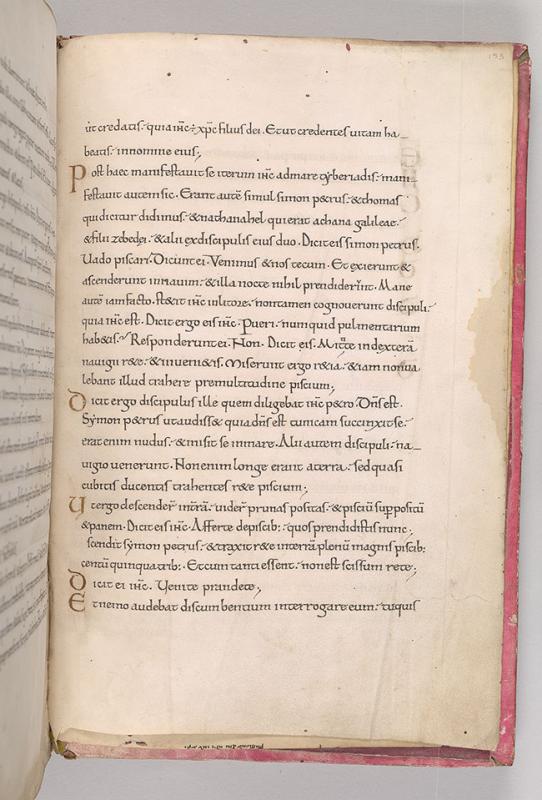 193
ut credatis· quia ihc÷ xpc filius dei. Et ut credentes vitam ha
beatis· innomine eius;
Post haec manifestavit se iterum ihc admare tyberiadis· mani
festavit autem sic. Erant autē simul simon petrus· &thomas
qui dicitur didimus· &nathanahel qui erat achana galileae·
&filii zebedei· &alii exdiscipulis eius duo. Dicit eis simon petrus.
Uado piscari. Dicunt ei. Venimus &nos tecum. Et exierunt &
ascenderunt innavim· &illa nocte nihil prendider̄t. Mane
autē iam facto. st&it ihc inlitore· non tamen cognouerunt discipuli·
quia ihc est. Dicit ergo eis ihc. Pueri· numquid pulmentarium
hab&is· Responderunt ei. Non. Dicit eis. Mittite indexterā
navigii r&e· &inveni&is. Miserunt ergo r&ia· &iam non va
lebant illud trahere premultitudine piscium;
Dicit ergo discipulus ille quem diligebat ihc p&ro. Dn̄s est.
Symon p&rus ut audiss& quia dn̄s est tunicam succinxit se·
erat enim nudus· &misit se inmare. Alii autem discipuli· na
uigio venerunt. Non enim longe erant aterra· sed quasi
cubitis ducentis trahentes r&e piscium;
Ut ergo descender̄ intrā· uider̄ prunas positas· &pisciū suppositū
&panem. Dicit eis ihc. Afferte depiscib:· quos prendidistis nunc;
scendit symon petrus· &traxit r&e interrā plenū magnis piscib:
centū quinquatrib:. Et cum tanti essent· non est scissum rete;
Dicit ei ihc. Uenite prandete;
Et nemo audebat discumbentium interrogare eum· tu quis